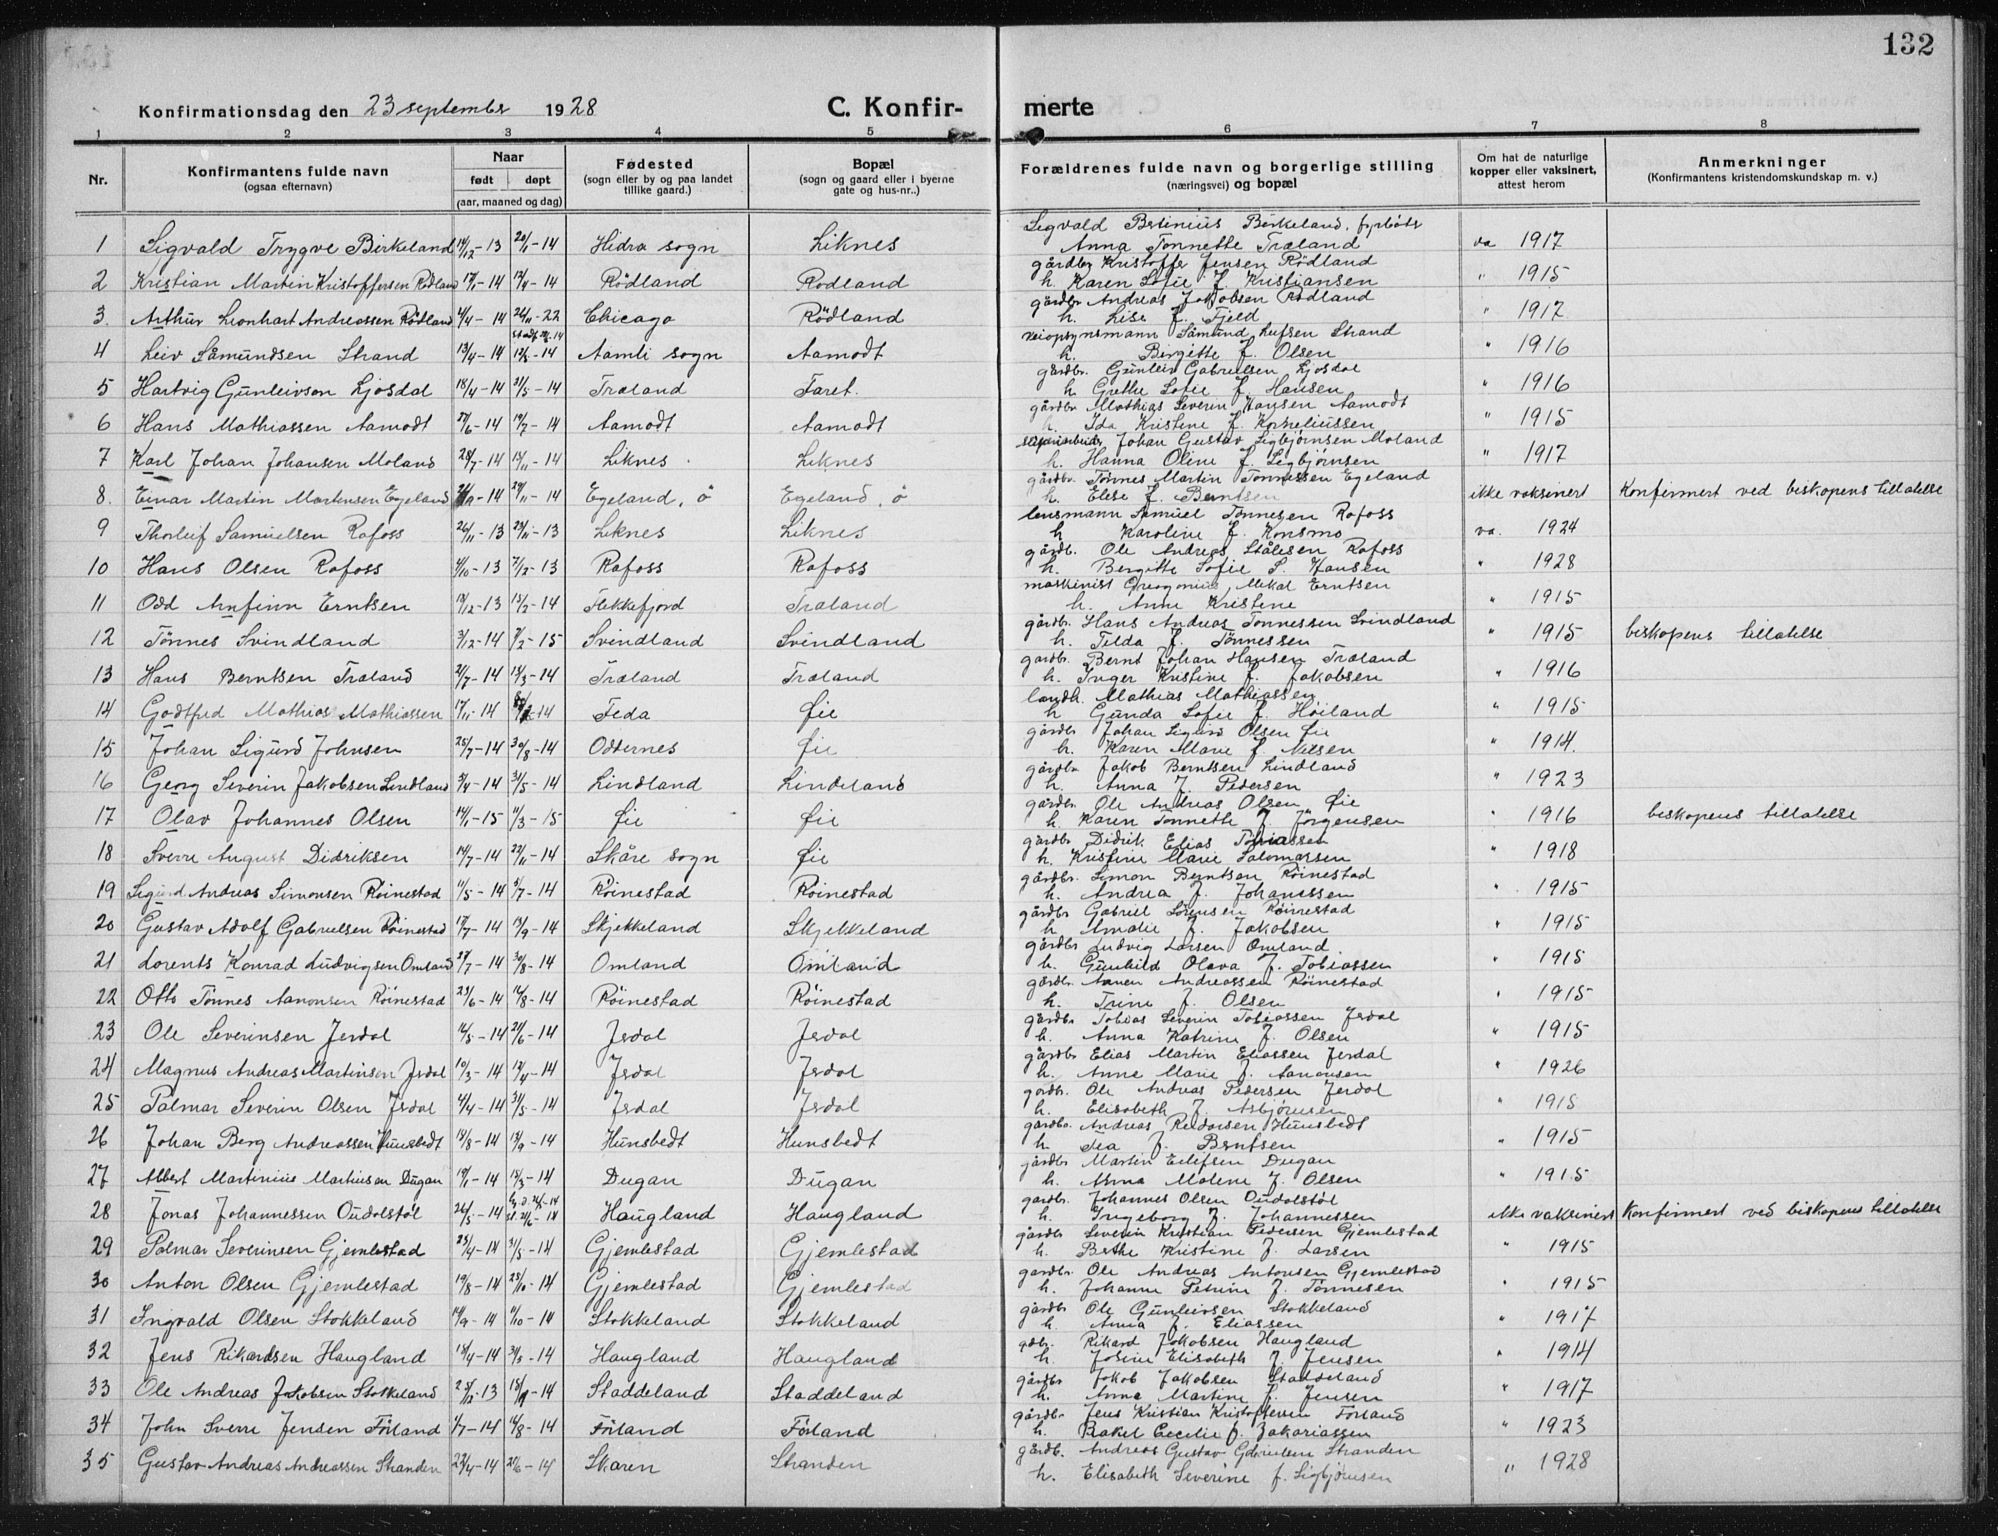 132
Konfirmationsdag den 23 september 1928 C. Konfir- merte
1 2 3 4 5 6 7 8
Nr. Konfirmantens fulde navn (ogsaa efternavn) Naar født døpt (aar, maaned og dag) Fødested (sogn eller by og paa landet tillike gaard.) Bopæl (sogn og gaard eller i byerne gate og hus-nr..) Forældrenes fulde navn og borgerlige stilling (næringsvei) og bopæl Om hat de naturlige kopper eller vaksinert, attest herom Anmerkninger (Konfirmantens kristendomskundskap m. v.)
1 Sigvald Trygve Birkeland 14/12-13 20/1-14 Hidra sogn Liknes Sigvald Birkeland, fyrbøter
Anna Tønnette Træland va 1917
2 Kristian Martin Kristoffersen Rødland -14 12/4-14 Rødland Rødland gårdbr Kristoffer Jensen Rødland
h. Karen Sofie f. Kristiansen " 1915
3. Arthur Leonhart Andreassen Rødland 4/4-14 26/11-22 Chicago Rødland gårdbr Andreas Jakobsen Rødland
h. Lise f. Fjeld " 1917
4 Leiv Såmundsen Strand 13/4-14 -14 Aamli sogn Aamodt veiopsynsmann Såmund Leifsen Strand
h. Bergitte f. Olsen " 1916
5 Hartvig Gunleivson Ljosdal 18/4-14 31/5-14 Træland Faret. gårdbr. Gunleiv Gabrielsen Ljosdal
h. Grethe Sofie f. Hansen " 1916
6 Hans Mathiassen Aamodt 27/6-14 19/7-14 Aamodt Aamodt gårdbr Mathias Severin Hansen Aamodt
h. Ida Kristine f. Korneliussen " 1915
7 Karl Johan Johansen Moland 28/7-14 15/11-14 Liknes Liknes Johan Gustav Sigbjørnsen Moland
h. Hanna Oline f. Sigbjørnsen " 1917
8. Einar Martin Martinsen Egeland -14 29/11-14 Egeland, ø Egeland, ø gårdbr. Tønnes Martin Tønnessen Egeland
h. Elise f. Berntsen ikke vaksinert Konfirmert ved biskopens tillatelse
9 Thorleif Samuelsen Rafoss 26/11-13 23/11-13 Liknes Liknes lensmann Samuel Tønnesen Rafoss
h Karoline f. Konsmo va. 1924
10 Hans Olsen Rafoss 4/10-13 7/12-13 Rafoss Rafoss gårdb. Ole Andreas Stålesen Rafoss
h. Bergitte Sofie f. Hansen " 1928
11 Odd Arnfinn Erntsen 18/12-13 15/2-14 Flekkefjord Træland maskinist Mikal Erntsen
h. Anne Kristine " 1915
12 Tønnes Svindland 3/12-14 7/2-15 Svindland Svindland gårdbr. Hans Andreas Tønnessen Svindland
h. Tilda f. Tønnessen " 1915 biskopens tillatelse
13 Hans Berntsen Træland -14 15/3-14 Træland Træland gårdbr. Bernt Johan Hansen Træland
h. Inger Kristine f. Jakobsen " 1916
14 Godtfred Mathias Mathiassen 17/11-14 -14 Feda Øie landh. Mathias Mathiassen
h Gunda Sofie f. Høiland " 1915
15 Johan Sigurd Johnsen 25/7-14 30/8-14 Oddernes Øie gårdbr Johan Sigurd Olsen Øie
h. Karen Marie f. Nilsen " 1914.
16 Georg Severin Jakobsen Lindland 3/4-14 31/5-14 Lindland Lindeland gårdbr Jakob Berntsen Lindland
h. Anna f. Pedersen " 1923
17 Olav Johannes Olsen 14/1-15 11/3-15 Øie Øie gårdbr. Ole Andreas Olsen Øie
h. Karen Tønnette f Jørgensen " 1916 biskopens tillatelse
18 Sverre August Didriksen 14/7-14 22/11-14 Skåre sogn Øie gårdbr Didrik Elias Tobiassen
h. Kristine Marie Salomansen " 1918
19 Sigurd Andreas Simonsen Røinestad 11/5-14 5/7-14 Røinestad Røinestad gårdbr. Simon Berntsen Røinestad
h. Andrea f. Johanessen " 1915
20 Gustav Adolf Gabrielsen Røinestad 17/7-14 13/9-14 Skjekkeland Skjekkeland gårdbr Gabriel Sørensen Røinestad
h. Amalie f. Jakobsen " 1915
21 Lorents Konrad Ludvigsen Omland 29/7-14 30/8-14 Omland Omland gårdbr Ludvig Larsen Omland
h. Gunhild Olava f. Tobiassen " 1915
22 Otto Tønnes Aanonsen Røinestad 23/6-14 16/8-14 Røinestad Røinestad gårdbr. Aanen Andreassen Røinestad
h. Trine f. Olsen " 1915
23 Ole Severinsen Jerdal 16/5-14 21/6-14 Jerdal Jerdal gårdbr Tobias Severin Tobiassen Jerdal
h. Anna Katrine f. Olsen " 1915
24 Magnus Andreas Martinsen Jerdal 10/3-14 12/4-14 Jerdal Jerdal gårdbr Elias Martin Eliassen Jerdal
h. Anne Marie f. Aanonsen " 1926
25 Palmar Severin Olsen Jerdal 4/4-14 31/5-14 Jerdal Jerdal gårdbr. Ole Andreas Pedersen Jerdal
h. Elisabeth f. Asbjørnsen " 1915
26 Johan Berg Andreassen Hunsbedt 15/8-14 13/9-14 Hunsbedt Hunsbedt gårdbr. Andreas Reidarsen Hunsbedt
h. Tea f. Berntsen " 1915
27 Albert Martinius Martinsen Dugan 19/1-14 15/3-14 Dugan Dugan gårdbr Martin Eilifsen Dugan
h. Anna Malene f. Olsen " 1915
28 Jonas Johannessen Oudalstøl 26/5-14 Haugland Haugland gardbr. Johannes Olsen Oudalstøl
h. Ingeborg f. Johannessen ikke vaksinert Konfirmert ved biskopens tillatelse
29 Palmar Severinsen Gjemlestad 25/4-14 31/5-14 Gjemlestad Gjemlestad gårdbr Severin Kristian Pedersen Gjemlestad
h. Berthe Kristine f. Larsen " 1915
30 Anton Olsen Gjemlestad 19/8-14 25/10-14 Gjemlestad Gjemlestad gardbr. Ole Andreas Antonsen Gjemlestad
h. Johanne Petrine f. Tønnesen " 1915
31 Ingvald Olsen Stokkeland 14/9-14 11/10-14 Stokkeland Stokkeland gårdbr Ole Gunleivsen Stokkeland
h. Anna f. Eliassen " 1917
32 Jens Rikardsen Haugland 15/4-14 31/5-14 Haugland Haugland gdbr. Rikard Jakobsen Haugland
h. Josine Elisabeth f. Jensen " 1914
33 Ole Andreas Jakobsen Stokkeland 25/12-13 -14 Staddeland Staddeland gårdbr Jakob Jakobsen Staddeland
h. Anna Martine f. Jensen " 1917
34 John Sverre Jensen Førland 1/7-14 16/8-14 Førland Førland gårdbr. Jens Kristian Kristoffersen Førland
h. Rakel Cecilie f. Zakariassen " 1923
35 Gustav Andreas Andreassen Stranden 22/4-14 21/6-14 Skaren Stranden gårdb. Andreas Gustav Gabrielsen Stranden
h. Elisabeth Severine f. Sigbjørnsen " 1928